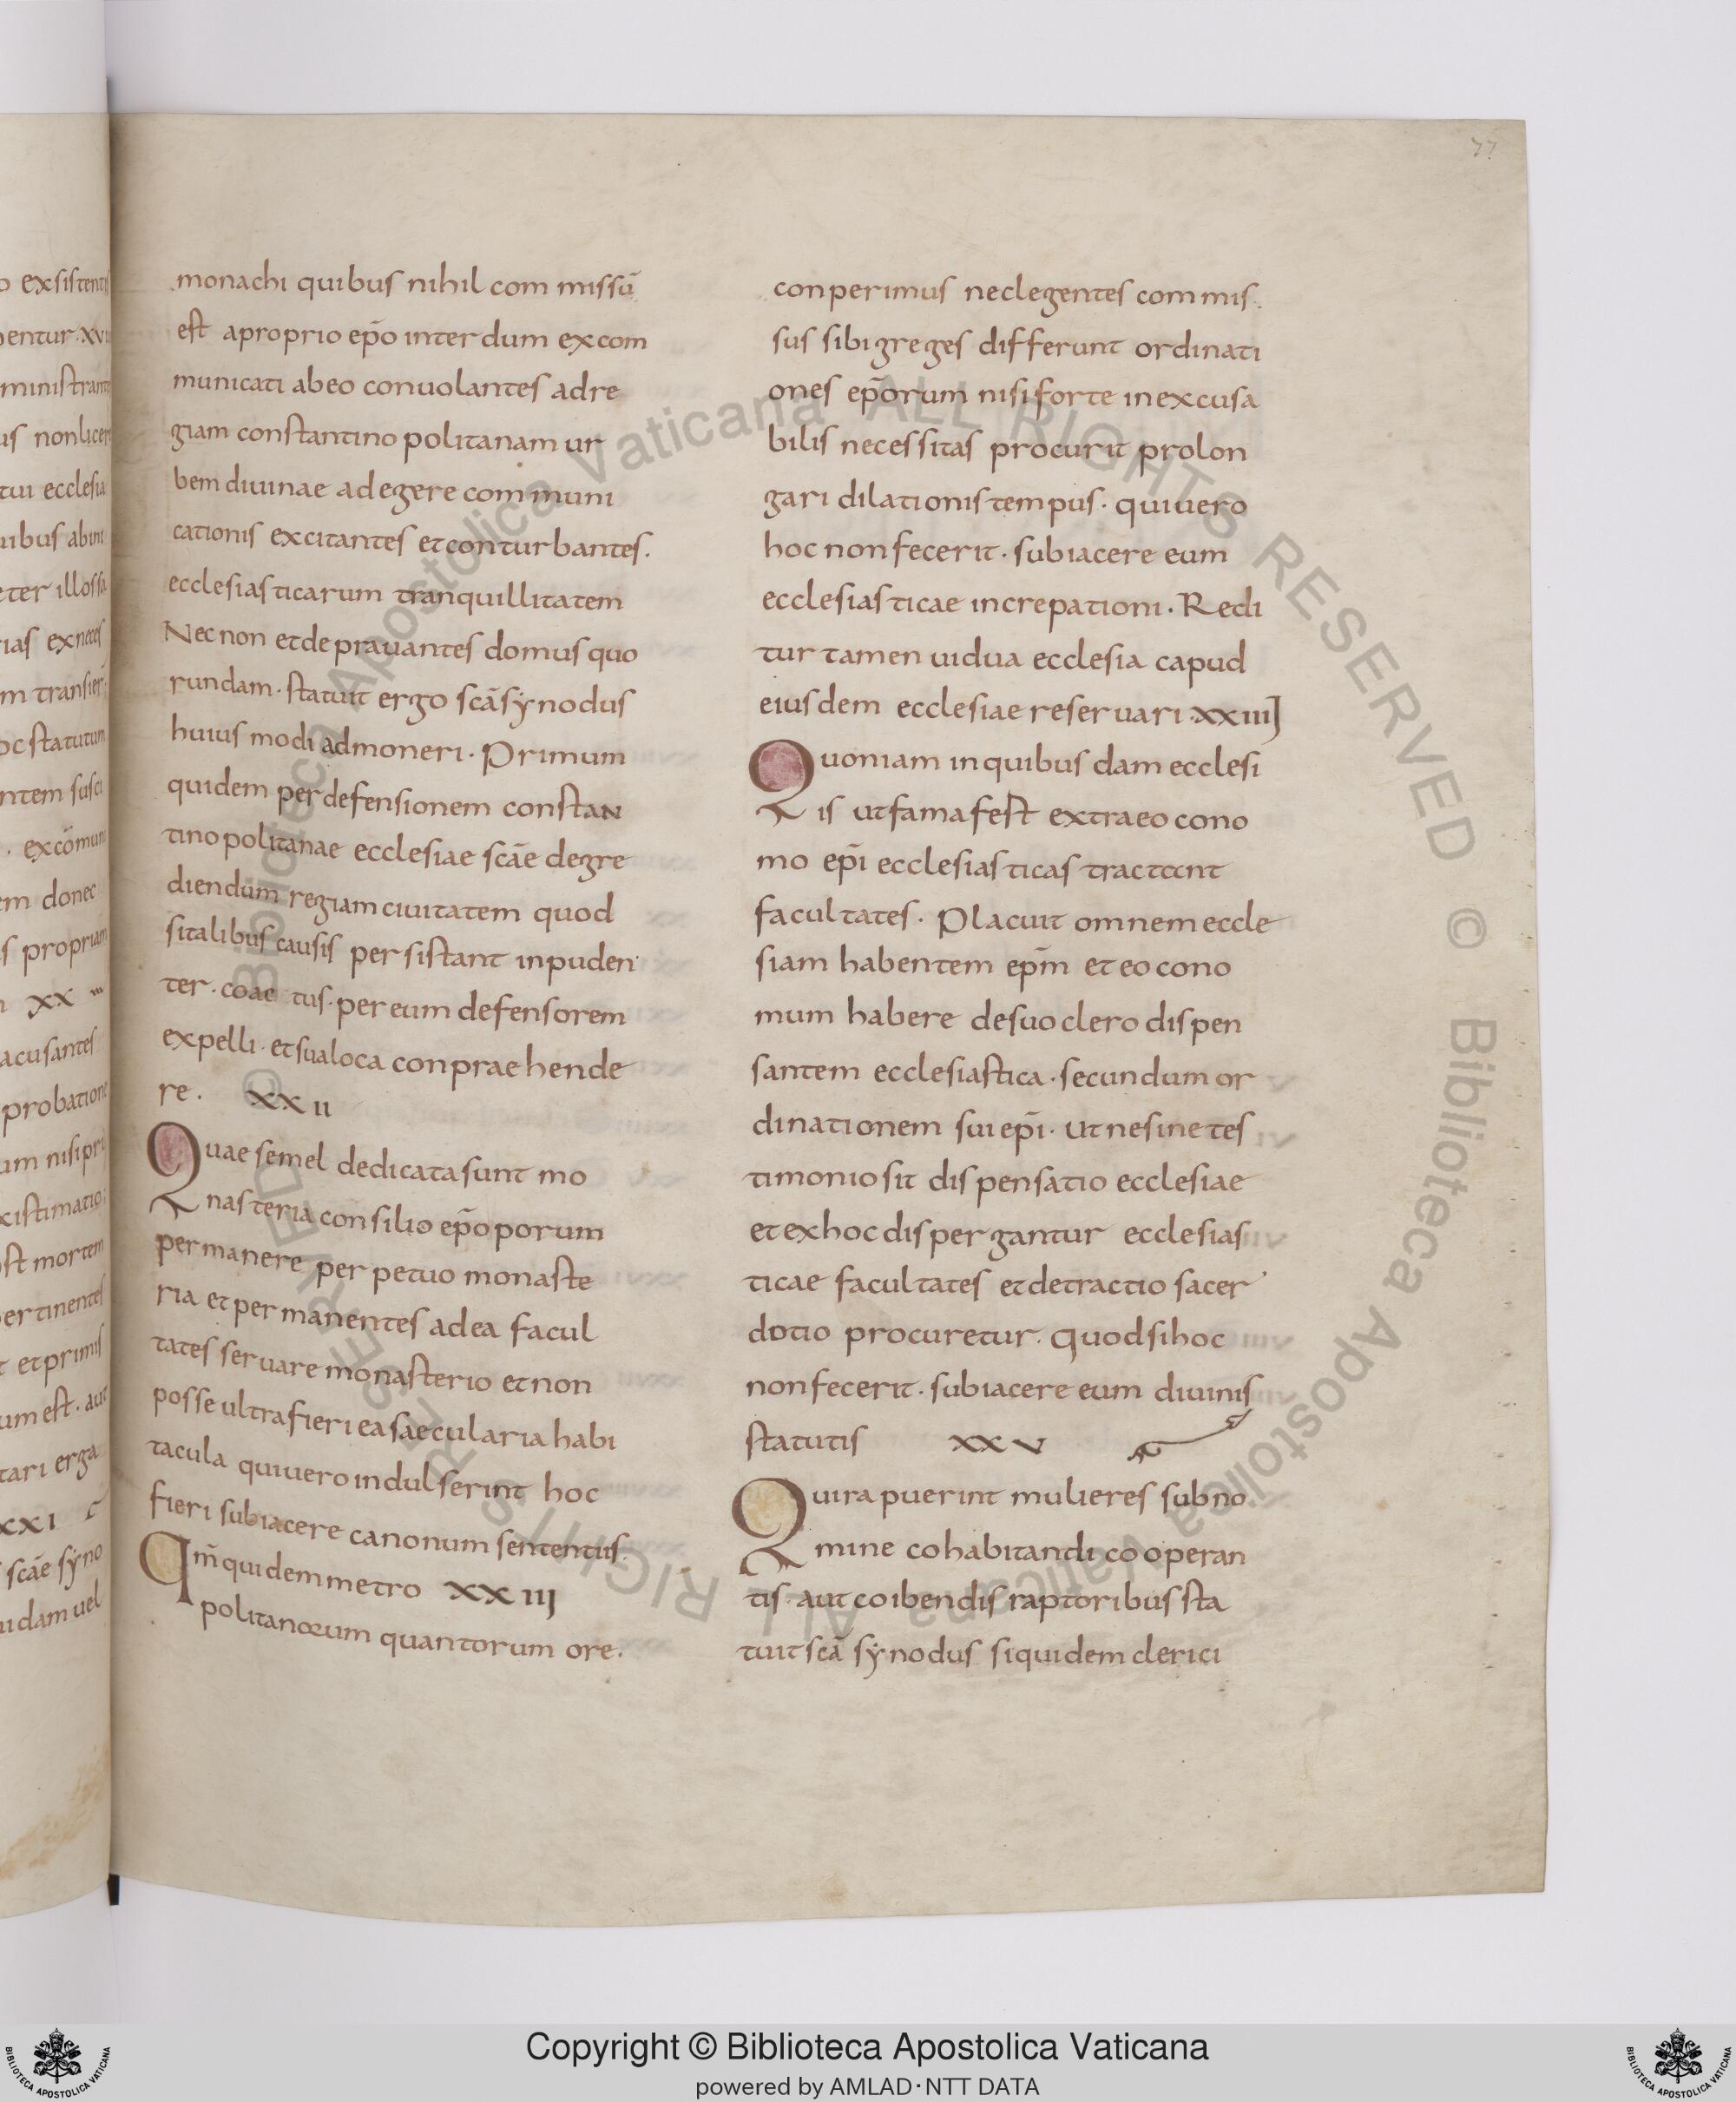 77
o exsistent
pentur XVI
ministrant
us nonlicer
tui ecclesia
uibus abini
eter illossa
rias exneces
m transier
oc statutum
ntem susci
excōmun
em donec
s propriam
XX
acusantes
probatione
um nisipri
xistimatio
ost mortem
pertinentes
t etprimis
um est. aut
tari erga
XXI
scāe sẏno
uidam uel
monachi quibus nihil com missū
est aproprio ep̄o inter dum excom
municati abeo conuolantes adre
giam constantino politanam ur
bem diuinae adegere com muni
cationis excitantes etconturbantes.
ecclesias ticarum tranquillitatem
Necnon etdeprauantes domus quo
rundam. statuit ergo scā sẏnodus
huius modi admoneri. Primum
quidem per defensionem constan
tinopolitanae ecclesiae scāe degre
diendum regiam ciuitatem quod
sitalibus causis per sistant inpuden
ter. coac tus. per eum defensorem
expelli. etsualoca conprae hende
re. XX II
Quae semel dedicatasunt mo
nasteria consilio ep̄oporum
permanere per petuo monaste
ria et permanentes adea facul
tates seruare monasterio etnon
posse ultrafieri easaecularia habi
tacula quiuero indulserint hoc
fieri subiacere canonum sententiis.
Qm̄ quidem metro XX III
politanorum quantorum ore.
conperimus neclegentes com mis.
sus sibi greges differunt ordinati
ones ep̄orum nisi forte inexcusa
bilis necessitas procurit prolon
gari dilationis tempus. quiuero
hoc nonfecerit. subiacere eum
ecclesias ticae increpationi. Redi
tur tamen uidua ecclesia capud
eiusdem ecclesiae reseruari. XXIIII
Quoniam inquibus dam ecclesi
is utfamafest extraeo cono
mo ep̄i ecclesias ticas tractant
facultates. Placuit omnem eccle
siam habentem ep̄m et eo cono
mum habere desuo clero dis pen
santem ecclesiastica. secundum or
dinationem sui ep̄i. Ut nesine tes
timonio sit dis pensatio ecclesiae
et exhoc dispergantur ecclesias
ticae facultates etdetractio sacer
dotio procuretur. quodsihoc
nonfecerit. subiacere eum diuinis
statutis XX V
Quirapuerint mulieres sub no.
mine cohabitandi co operan
tis. aut coibendis raptoribus sta
tuit scā sẏnodus siquidem clerici
© Biblioteca Apostolica Vaticana ALL RIGHTS RESERVED © Biblioteca Apostolica Vaticana ALL RIGHTS RESERVED
Copyright © Biblioteca Apostolica Vaticana
powered by AMLAD·NTT DATA
BIBLIOTECA APOSTOLICA VATICANA
BIBLIOTECA APOSTOLICA VATICANA